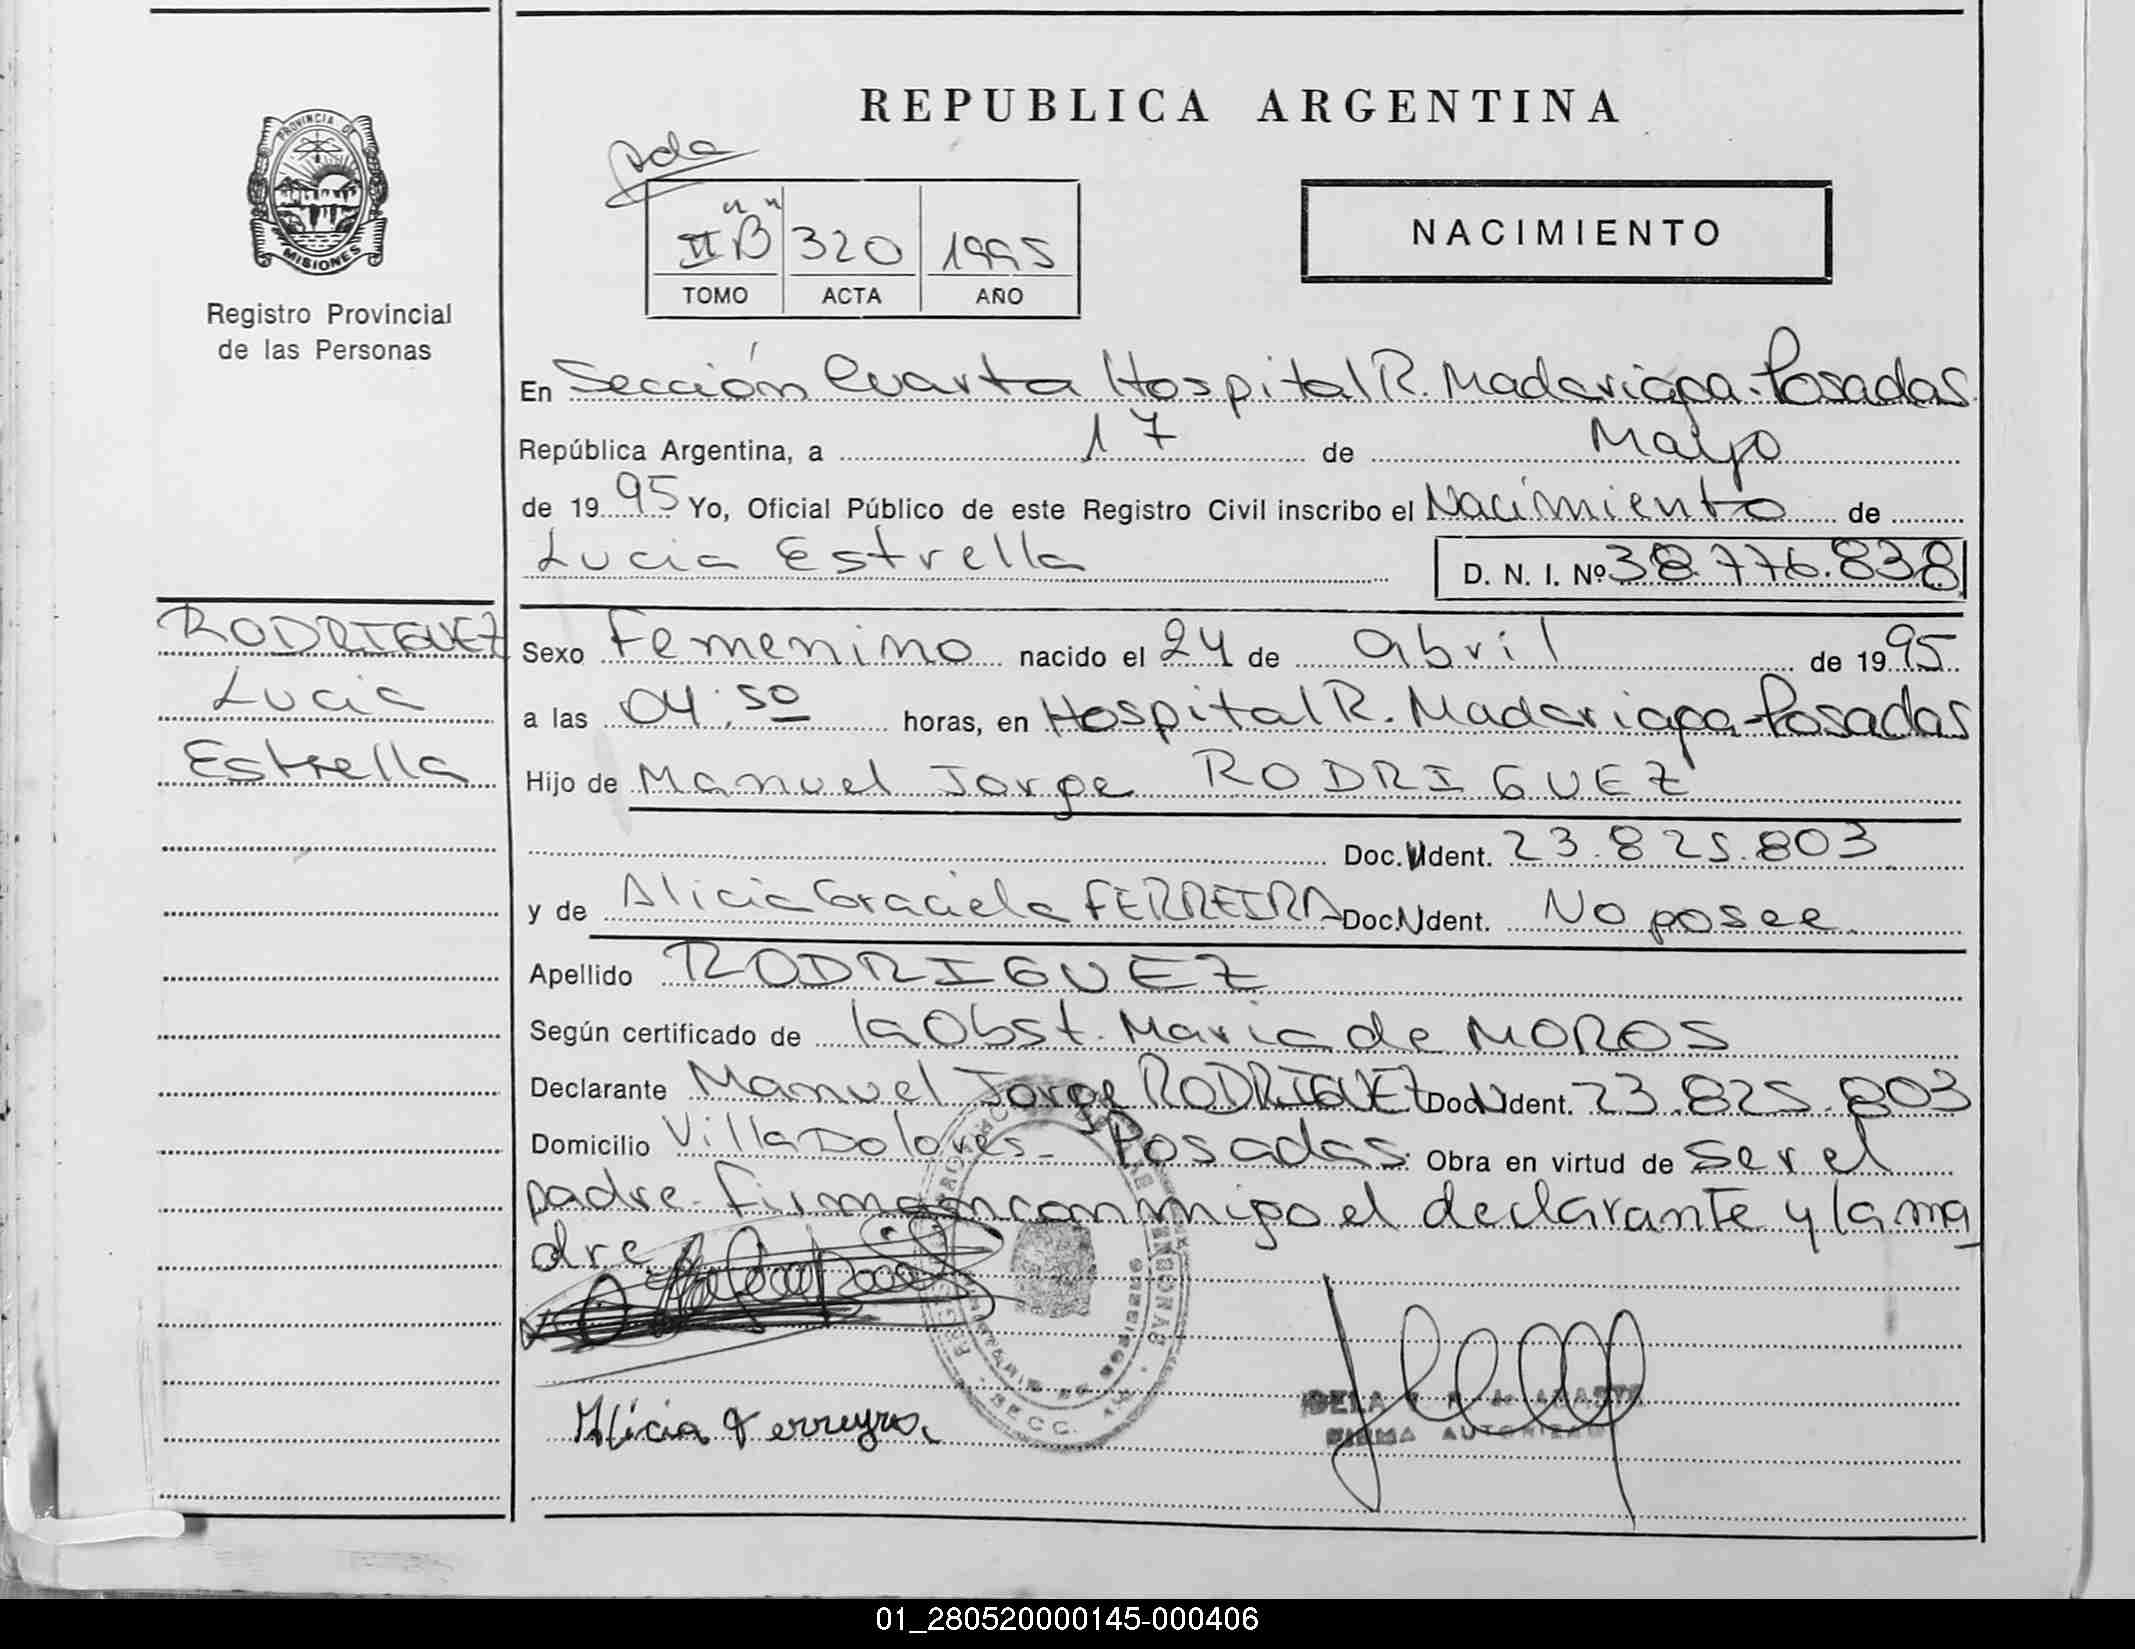 REPUBLICA ARGENTINA
PROVINCIA DE
MISIONES
Registro Provincial
de las Personas
II "B" 320 1995
TOMO ACTA AÑO
NACIMIENTO
En Sección Cuarta Hospital R. Madariaga-Posadas
República Argentina, a 17 de Mayo
de 1995 Yo, Oficial Público de este Registro Civil inscribo el Nacimiento de
Lucia Estrella D. N. I. Nº 38.776.838
RODRIGUEZ
Lucia
Estrella
Sexo Femenino nacido el 24 de abril de 1995
a las 04:50 horas, en Hospital R. Madariaga-Posadas
Hijo de Manuel Jorge RODRIGUEZ
Doc. Ndent. 23.825.803
y de Alicia Graciela FERREIRA Doc. Ndent. No posee
Apellido RODRIGUEZ
Según certificado de la Obst. Maria de MOROS
Declarante Manuel Jorge RODRIGUEZ Doc. Ndent. 23.825.803
Domicilio Villa Dolores- Posadas. Obra en virtud de ser el
padre. Firman conmigo el declarante y la ma
dre.
Alicia Ferreyra.
FIRMA AUTORIZADA
01_280520000145-000406